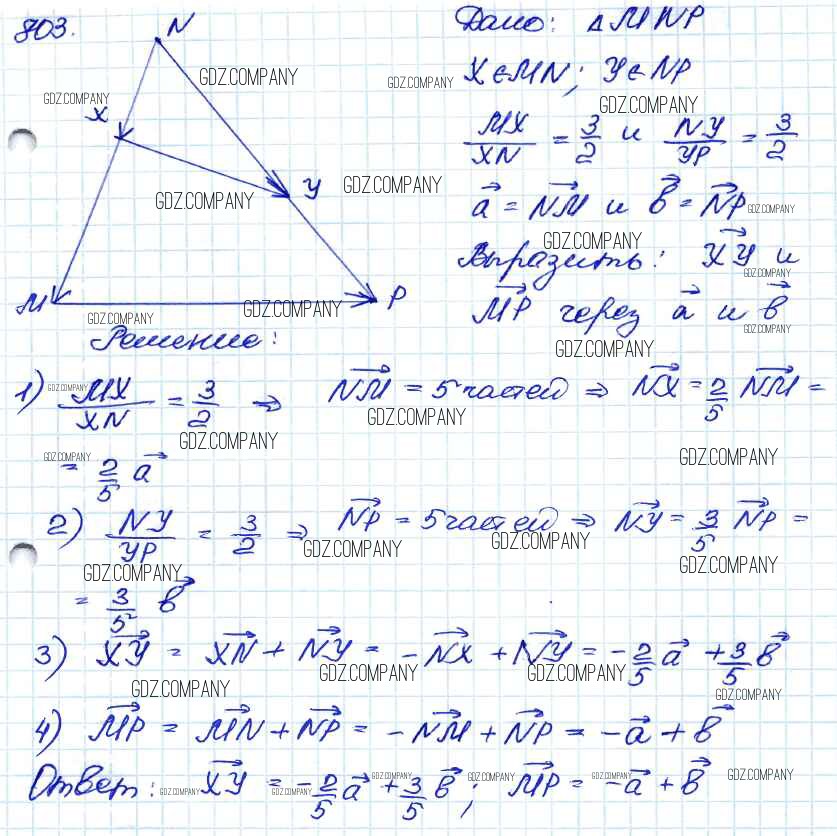 803.
N
X
Y
M
P
Дано: △MNP
X∈MN; Y∈NP
MX/XN = 3/2 и NY/YP = 3/2
a⃗ = NM⃗ и b⃗ = NP⃗
Выразить: XY⃗ и
MP⃗ через a⃗ и b⃗
Решение:
1) MX/XN = 3/2 ⇒ NM⃗ = 5 частей ⇒ NX⃗ = 2/5 NM⃗ =
= 2/5 a⃗
2) NY/YP = 3/2 ⇒ NP⃗ = 5 частей ⇒ NY⃗ = 3/5 NP⃗ =
= 3/5 b⃗
3) XY⃗ = XN⃗ + NY⃗ = -NX⃗ + NY⃗ = -2/5 a⃗ + 3/5 b⃗
4) MP⃗ = MN⃗ + NP⃗ = -NM⃗ + NP⃗ = -a⃗ + b⃗
Ответ: XY⃗ = -2/5 a⃗ + 3/5 b⃗; MP⃗ = -a⃗ + b⃗
GDZ.COMPANY